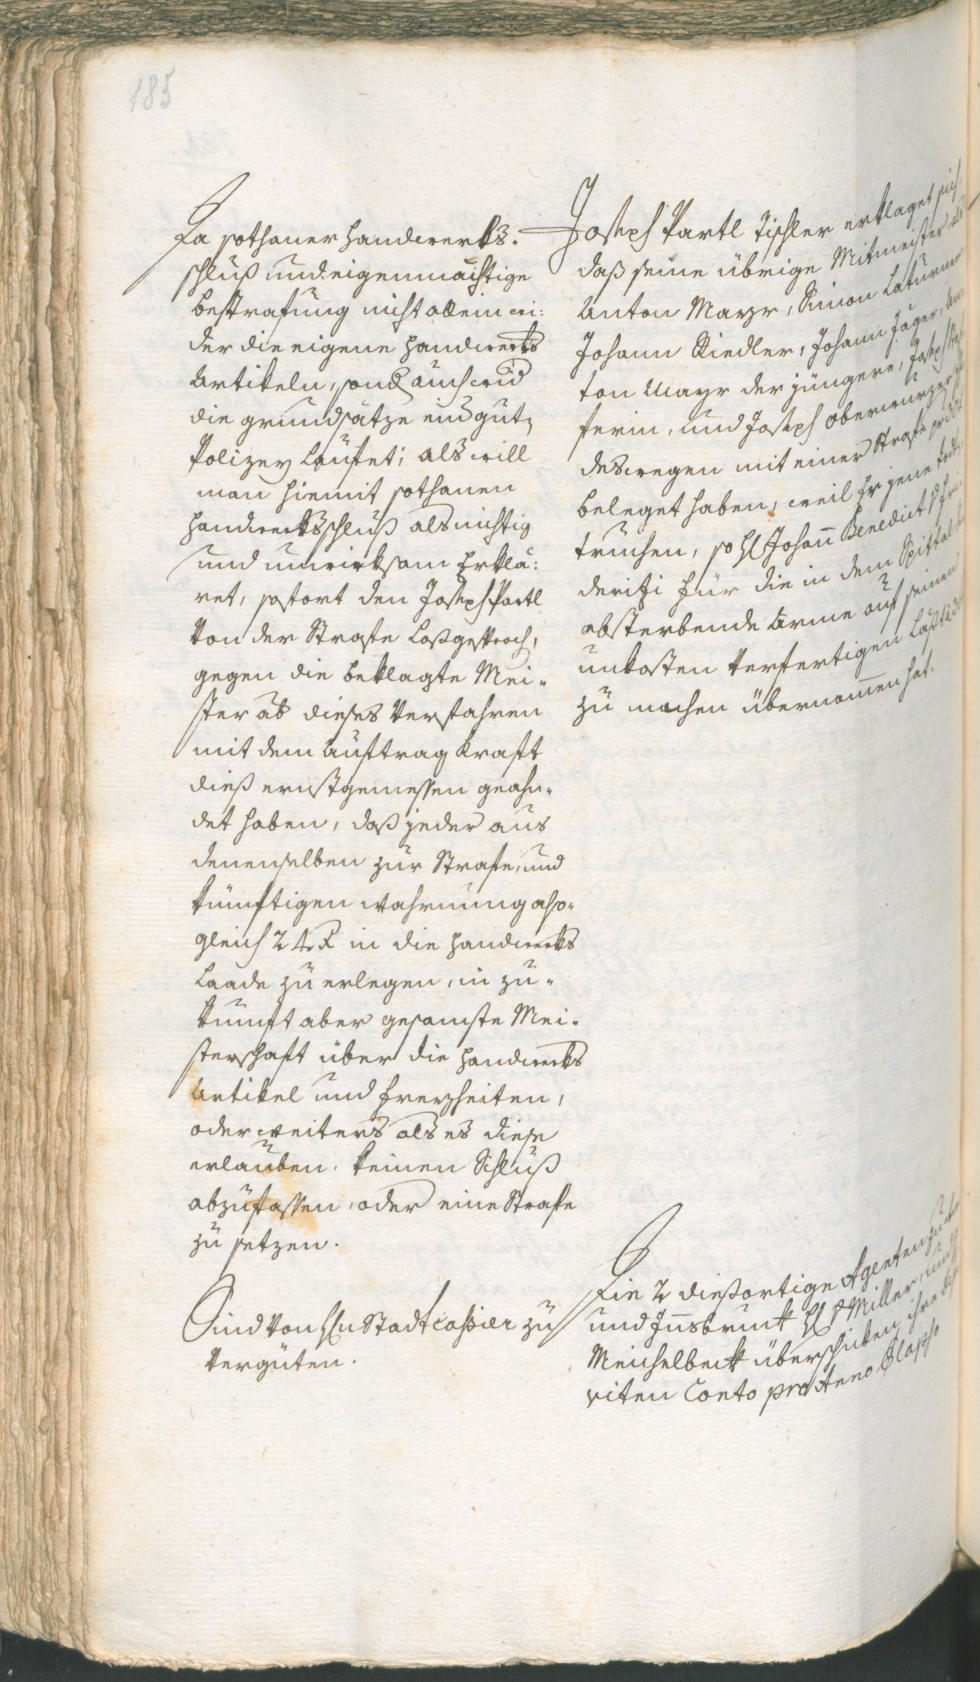 185
Da sothaner Handwerks-
schluß und eigenmächtige
Bestrafung nicht allein wi:
der die eigene Handwerks
Artikeln, sond auch wid
die grundsätze eins gut,
Polizey Laufet; als will
man hiemit sothanen
Handwerksschluß als nichtig
und unwirksam Erklä:
ret, sofort den Joseph Partl
von der Strafe Loßgesproch,
gegen die beklagte Mei-
ster ab dieses Verfahren
mit dem Auftrag Kraft
dieß ernstgemessen geahn-
det haben, daß jeder aus
denenselben zur Strafe, und
künftigen Wahrnung also-
gleich 24 x in die Handwerks
Laade zu erlegen, in zu-
kunft aber gesamte Mei-
sterschaft über die Handwerks
Artikel und Freyheiten,
oder weiters als es diese
erlauben, keinen Schluß
abzufassen, oder eine Strafe
zu setzen.
Sind von Hn Stadtcassier zu
vergüten.
Joseph Partl Tischler erklaget sich
daß seine übrige Mitmeister als
Anton Mayr, Simon Laturner
Johann Riedler, Johann Jager, An
ton Mayr der jüngere, Joseph
ferin, und Joseph Oberwurzer
deswegen mit einer Strafe pr
beleget haben, weil Er jene
truchen, so H Johann Benedict v
deritzi für die in dem Spittal
absterbende Arme auf seinen
unkosten verfertigen Laßt
zu machen übernommen hat.
Die 2 dießortige Agenten zu
und Innsbruck H v Miller, und
Meichelbeck überschicken ihre
viten Conto pro Anno Elapso